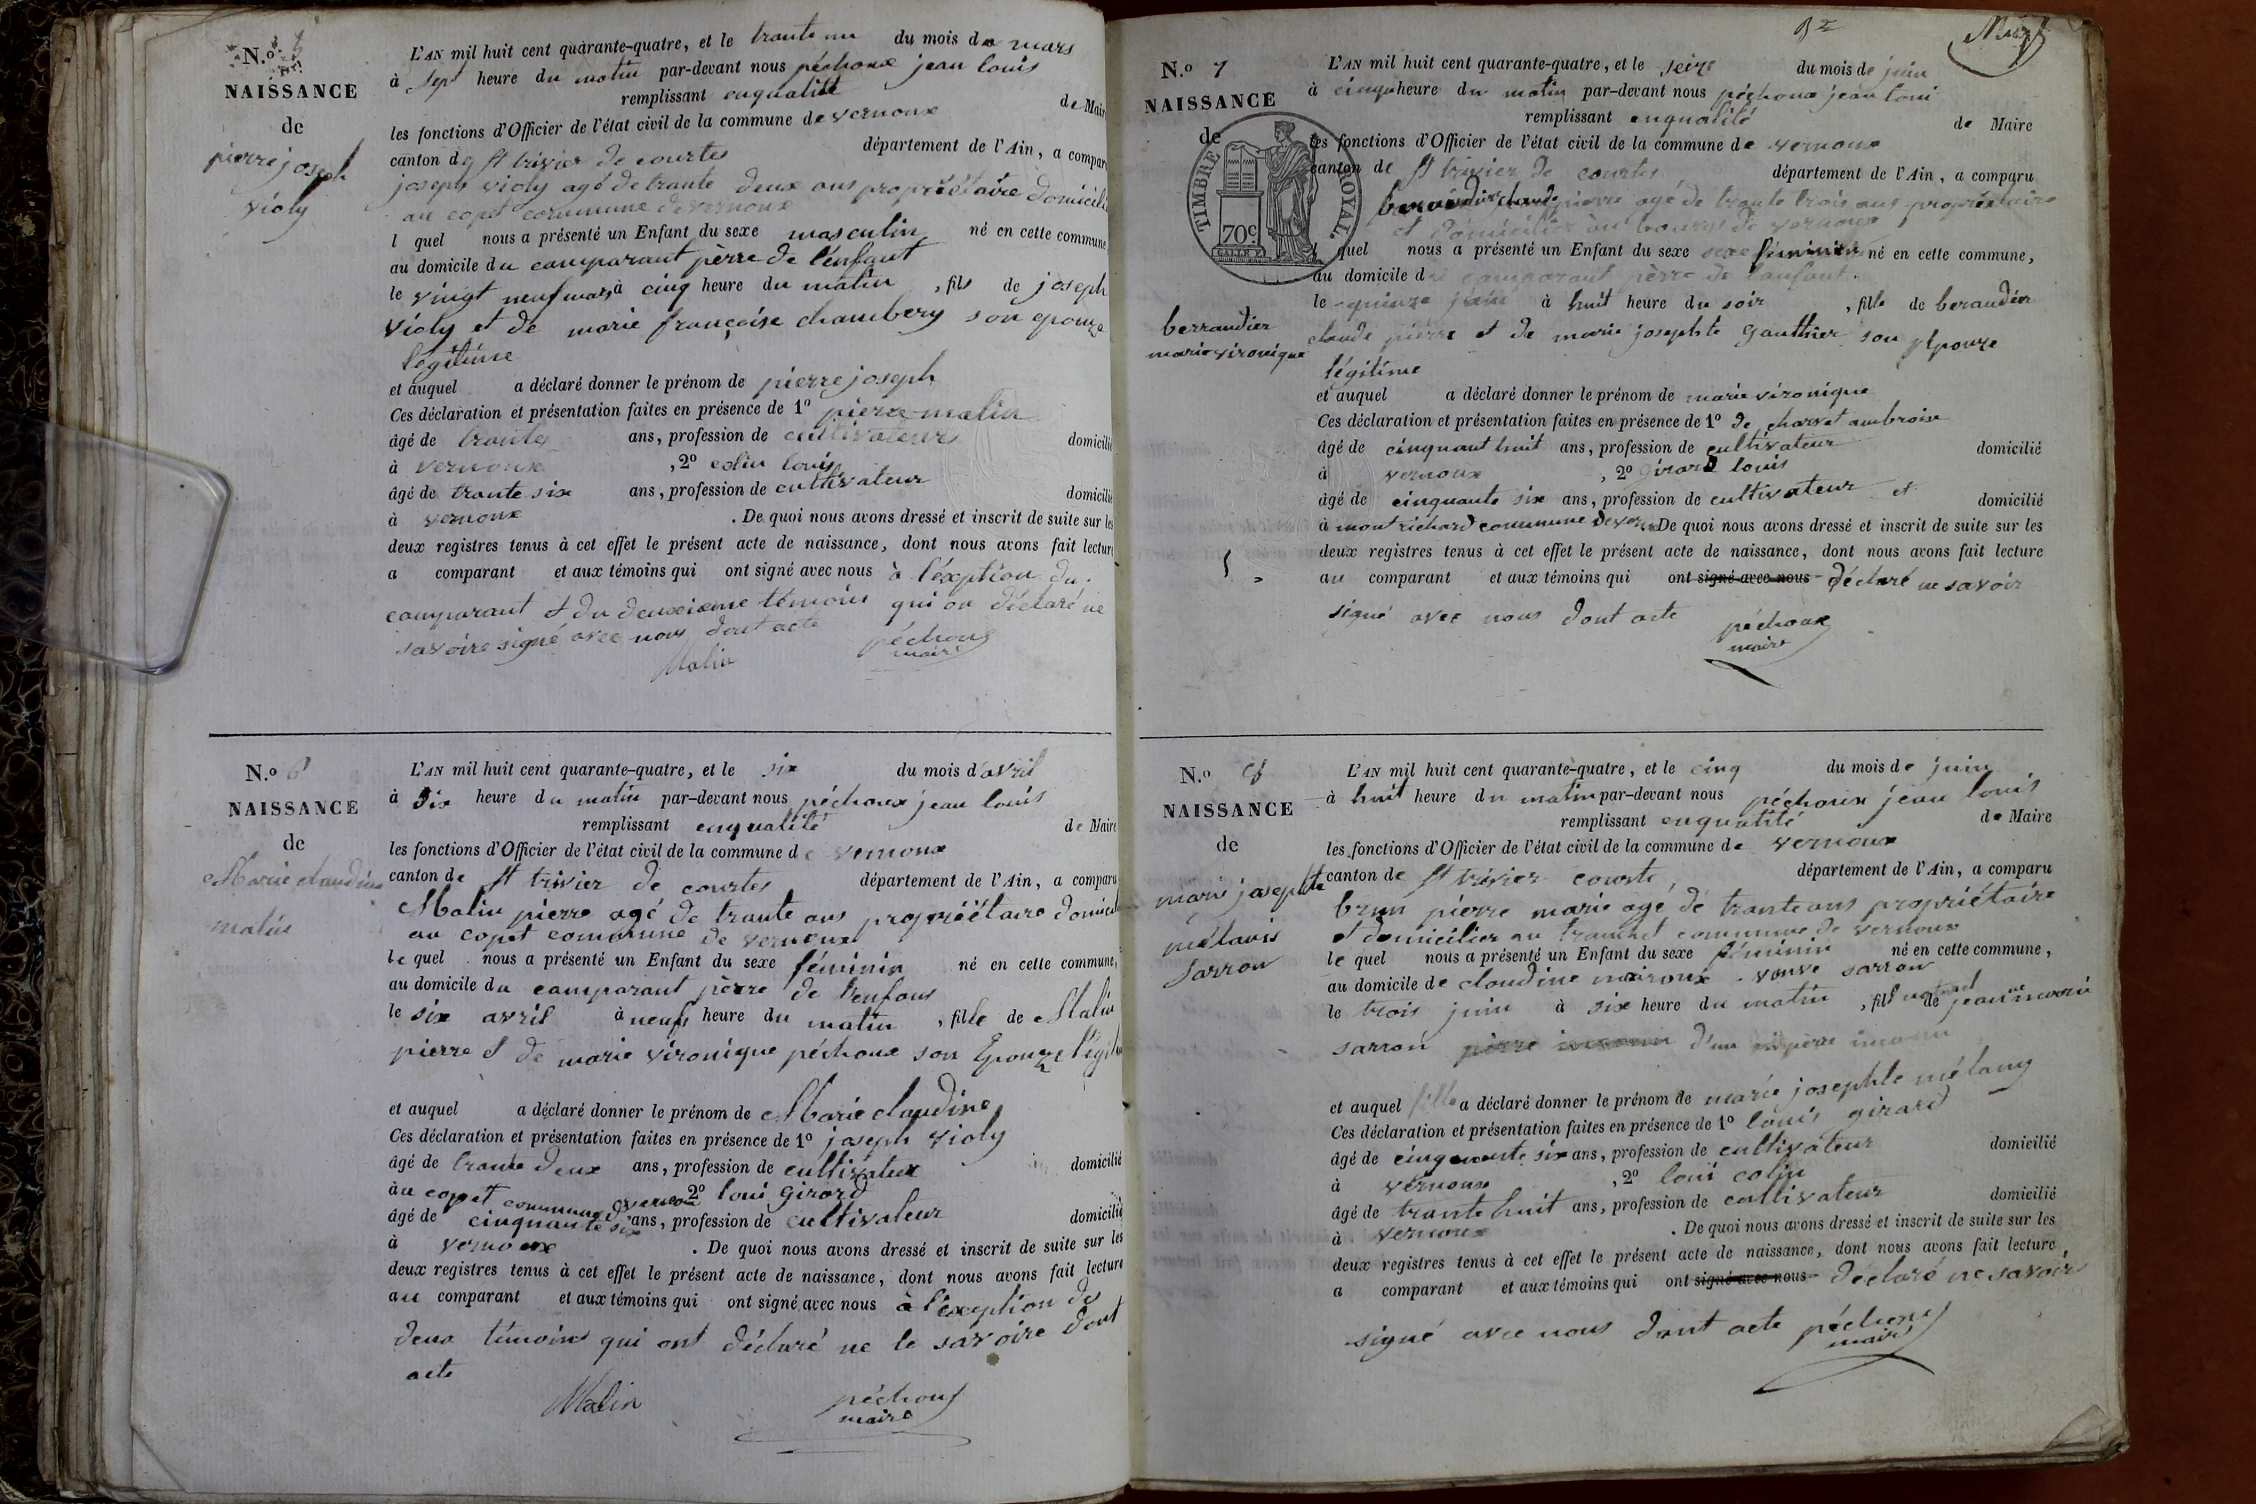 N.o 5
NAISSANCE
de
pierre joseph
violy
L'AN mil huit cent quarante-quatre, et le trante un du mois de mars
à sept heure du matin par-devant nous péchoux jean louis
remplissant enqualité de Maire
les fonctions d'Officier de l'état civil de la commune de vernoux
canton de st trivier de courtes département de l'Ain, a comparu
joseph violy agé de trante deux ans propriétaire domicilié
au copet commune de vernoux
l quel nous a présenté un Enfant du sexe masculin né en cette commune
au domicile du comparant pèrre de l'enfant
le vingt neuf mars à cinq heure du matin , fils de joseph
violy et de marie françoise chambery son epouze
légitime
et auquel a déclaré donner le prénom de pierre joseph
Ces déclaration et présentation faites en présence de 1o pierre malin
âgé de trante ans, profession de cultivateur domicilié
à vernoux , 2o colin louis
âgé de trante six ans, profession de cultivateur domicilié
à vernoux . De quoi nous avons dressé et inscrit de suite sur les
deux registres tenus à cet effet le présent acte de naissance, dont nous avons fait lecture
a comparant et aux témoins qui ont signé avec nous à l'éxption du
comparant et du deuxieme témoins qui on déclaré ne
savoire signé avec nous dont acte
Malin péchoux
maire
N.o 6
NAISSANCE
de
Marie claudine
malin
L'AN mil huit cent quarante-quatre, et le six du mois d'avril
à Dix heure du matin par-devant nous péchoux jean louis
remplissant enqualité de Maire
les fonctions d'Officier de l'état civil de la commune de vernoux
canton de st trivier de courtes département de l'Ain, a comparu
Malin pierre agé de trante ans propriétaire domicilié
au copet commune de vernoux
le quel nous a présenté un Enfant du sexe féminin né en cette commune,
au domicile du comparant pèrre de l'enfant
le six avril à neuf heure du matin , fille de Malin
pierre et de marie vironique péchoux son Epouze légit
et auquel a déclaré donner le prénom de Marie claudine
Ces déclaration et présentation faites en présence de 1o joseph violy
âgé de trante deux ans, profession de cultivateur domicilié
à au copet commune de vernoux 2o loui girard
âgé de cinquante six ans, profession de cultivateur domicilié
à vernoux . De quoi nous avons dressé et inscrit de suite sur les
deux registres tenus à cet effet le présent acte de naissance, dont nous avons fait lecture
au comparant et aux témoins qui ont signé avec nous à l'éxeption de
deux témoins qui ont déclaré ne le savoire dont
acte
Malin péchoux
maire
N.o 7
NAISSANCE
de
TIMBRE ROYAL.
70c
berraudier
marie vironique
L'AN mil huit cent quarante-quatre, et le seize du mois de juin
à cinq heure du matin par-devant nous péchoux jean loui
remplissant enqualité de Maire
les fonctions d'Officier de l'état civil de la commune de vernoux
canton de st trivier de courtes département de l'Ain, a comparu
beraudier claude pierre agé de trante trois ans propriétaire
et domicilier au bourg de vernoux
l quel nous a présenté un Enfant du sexe sexe féminin né en cette commune,
au domicile du comparant pèrre de l'anfant
le quinze juin à huit heure du soir , fille de beraudier
claude pierre et de marie josephte gauthier son Epouze
légitime
et auquel a déclaré donner le prénom de marie vironique
Ces déclaration et présentation faites en présence de 1o de charvet ambroise
âgé de cinquant huit ans, profession de cultivateur domicilié
à vernoux , 2o girard louis
âgé de cinquante six ans, profession de cultivateur et domicilié
à mont richard commune de vernoux De quoi nous avons dressé et inscrit de suite sur les
deux registres tenus à cet effet le présent acte de naissance, dont nous avons fait lecture
au comparant et aux témoins qui ont signé avec nous déclaré ne savoir
signé avec nous dont acte péchoux
maire
N.o 8
NAISSANCE
de
marie josephte
mélanis
sarron
L'AN mil huit cent quarante-quatre, et le cinq du mois de juin
à huit heure du matin par-devant nous péchoux jean louis
remplissant enqualité de Maire
les fonctions d'Officier de l'état civil de la commune de vernoux
canton de st trivier courte département de l'Ain, a comparu
brun pierre marie agé de trante ans propriétaire
et domicilier au tranchet commune de vernoux
le quel nous a présenté un Enfant du sexe féminin né en cette commune,
au domicile de claudine veuve sarron
le trois juin à six heure du matin , fille naturel de jeanne marie
sarron d'un père inconu
et auquel fille a déclaré donner le prénom de marie josephte mélany
Ces déclaration et présentation faites en présence de 1o louis girard
âgé de cinquante six ans, profession de cultivateur domicilié
à vernoux , 2o loui colin
âgé de trante huit ans, profession de cultivateur domicilié
à vernoux . De quoi nous avons dressé et inscrit de suite sur les
deux registres tenus à cet effet le présent acte de naissance, dont nous avons fait lecture
a comparant et aux témoins qui ont signé avec nous déclaré ne savoir
signé avec nous dont acte péchoux
maire